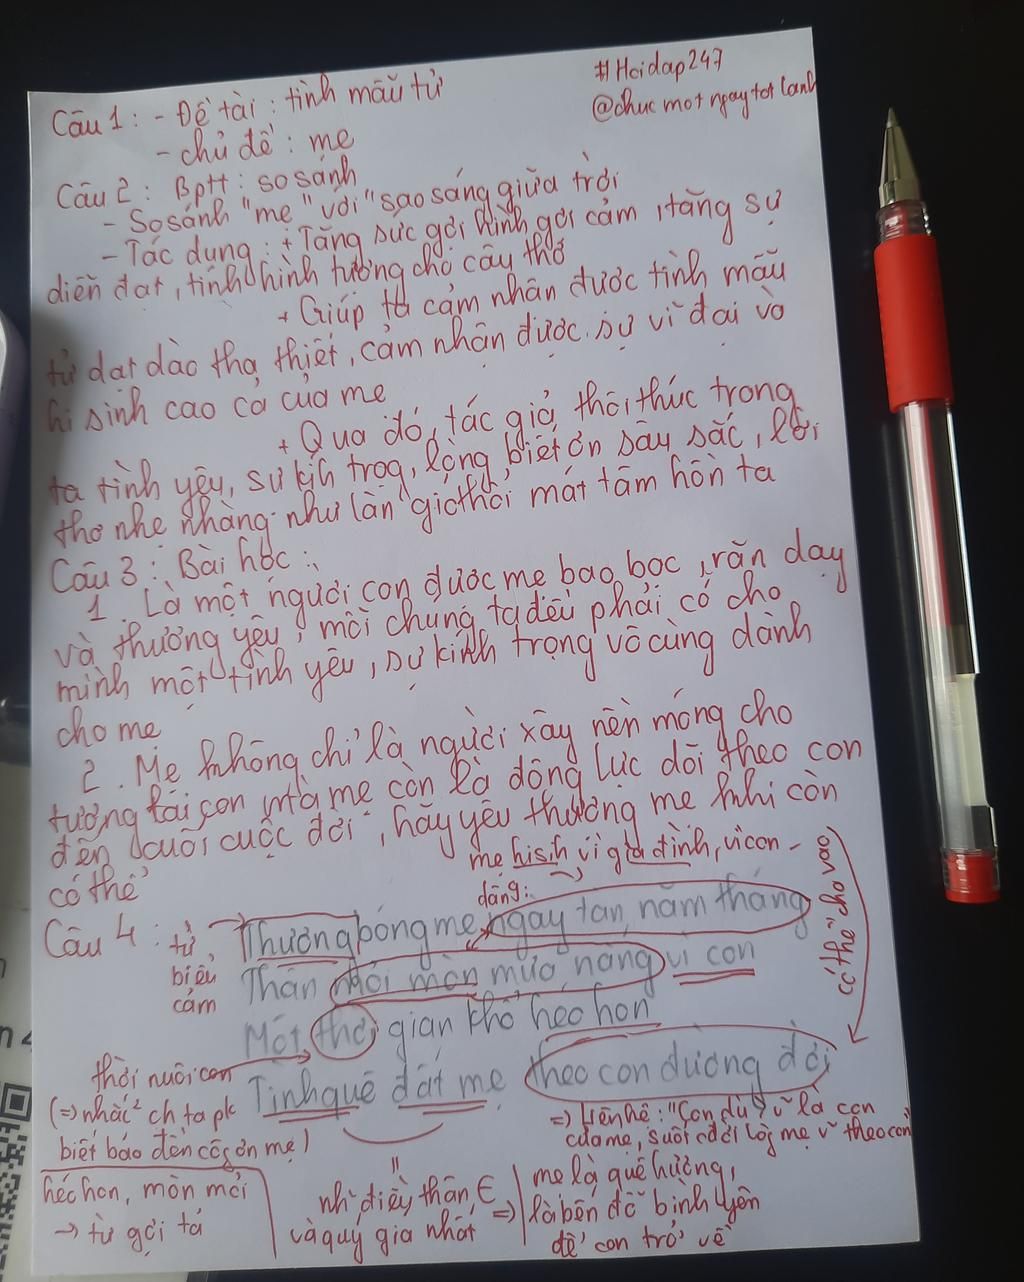 #Hoidap247
@chuc mot ngay tot lanh
Câu 1 : - Đề tài : tình mẫu tử
- chủ đề : mẹ
Câu 2 : Bptt : so sánh
- So sánh "mẹ" với "sao sáng giữa trời
- Tác dụng : + Tăng sức gợi hình gợi cảm , tăng sự
diễn đạt , tính hình tượng cho câu thơ
+ Giúp ta cảm nhận được tình mẫu
tử dạt dào tha thiết , cảm nhận được sự vĩ đại và
hi sinh cao cả của mẹ
+ Qua đó , tác giả thôi thúc trong
ta tình yêu , sự kíh trọg , lòng biết ơn sâu sắc , lời
thơ nhẹ nhàng như làn gió thổi mát tâm hồn ta
Câu 3 : Bài học :
1 . Là một người con được mẹ bao bọc , răn dạy
và thương yêu , mỗi chúng ta đều phải có cho
mình một tình yêu , sự kính trọng vô cùng dành
cho mẹ
2 . Mẹ không chỉ là người xây nền móng cho
tương lai con mà mẹ còn là động lực dõi theo con
đến cuối cuộc đời , hãy yêu thương mẹ khi còn
có thể
mẹ hi sih vì gia đình , vì con
dāng :
Câu 4 : từ
biểu
cảm
Thương bóng mẹ ngày tàn năm tháng
Thân mỏi mòn mưa nắng vì con
Một thời gian khổ héo hon
Tình quê đất mẹ theo con đường đời
có thể cho vào
thời nuôi con
(=> nhắc² ch ta pk
biết báo đền côg ơn mẹ )
=> Liên hệ : "Con dù lớ vẫ là con
của mẹ , suốt cđời lòg mẹ vẫ theo con
héo hon , mòn mỏi
-> từ gợi tả
nhữ điều thân €
và quý giá nhất =>
mẹ là quê hương ,
là bến đỗ bình yên
để con trở về